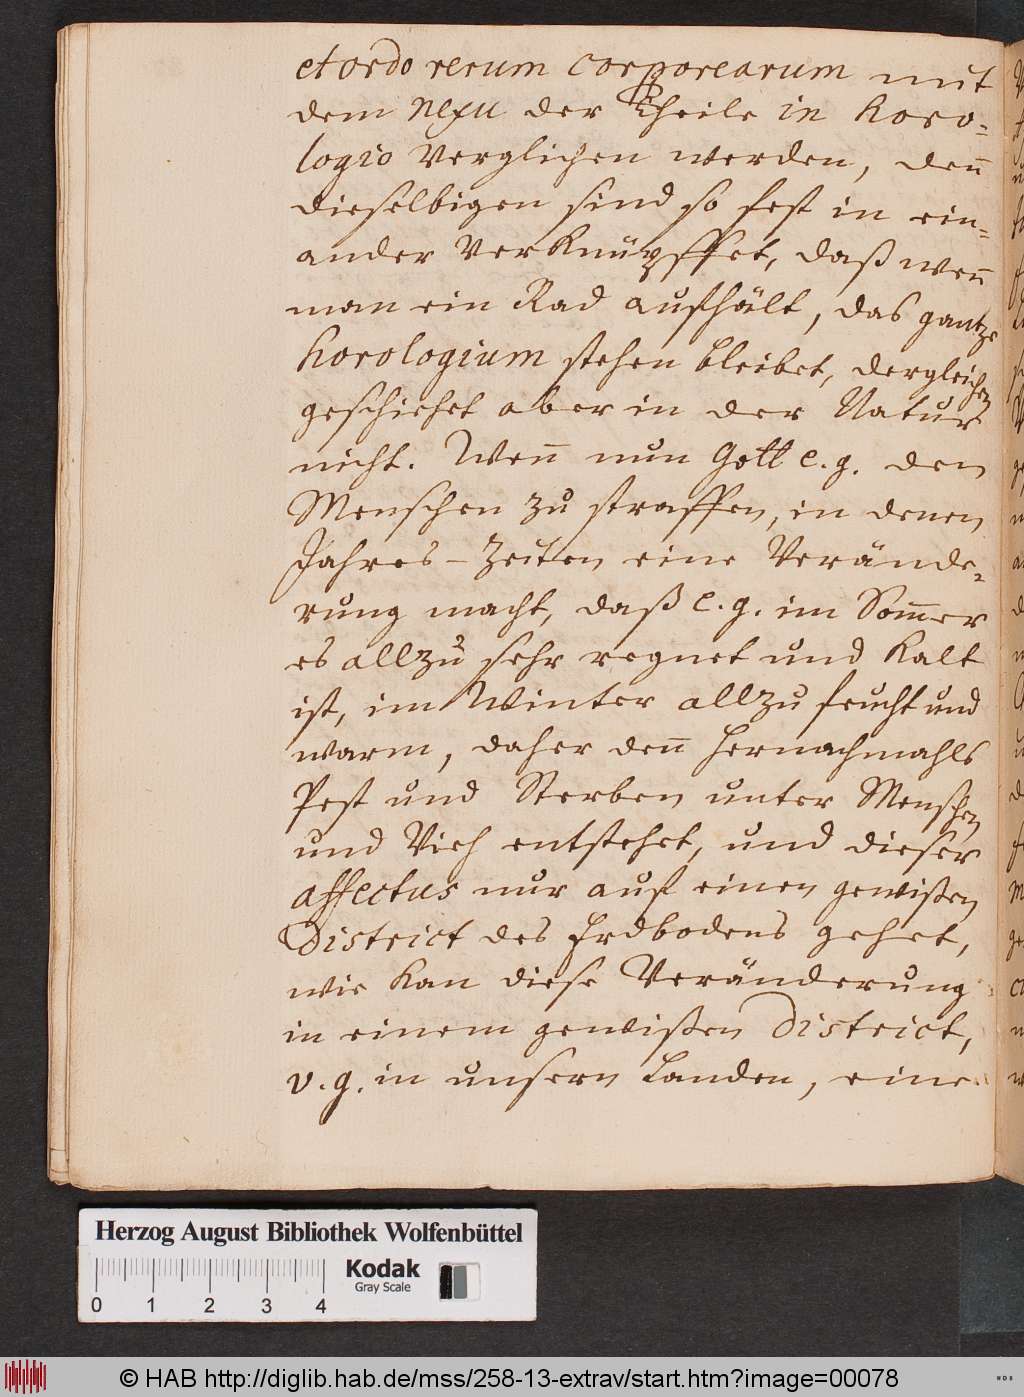 et ordo rerum corporearum mit
dem nexu der Theile in horo-
logio verglichen werden, den̄
dieselbigen sind so fest in ein-
ander verknüpffet, daß wen̄
man ein Rad aufhält, das gantze
horologium stehen bleibet, dergleichen
geschiehet aber in der Natur
nicht. Wen̄ nun Gott e. g. den
Menschen zu straffen, in denen
Jahres-Zeiten eine Verände-
rung macht, daß e. g. im Som̄er
es allzu sehr regnet und kalt
ist, im Winter allzu feucht und
warm, daher den̄ hernachmahls
Pest und Sterben unter Menschen
und Vieh entstehet, und dieser
affectus nur auf einen gewißen
District des Erdbodens gehet,
wie kan diese Veränderung
in einem gewißen District,
v. g. in unsern Landen, eine
Herzog August Bibliothek Wolfenbüttel
Kodak
Gray Scale
0 1 2 3 4
© HAB http://diglib.hab.de/mss/258-13-extrav/start.htm?image=00078